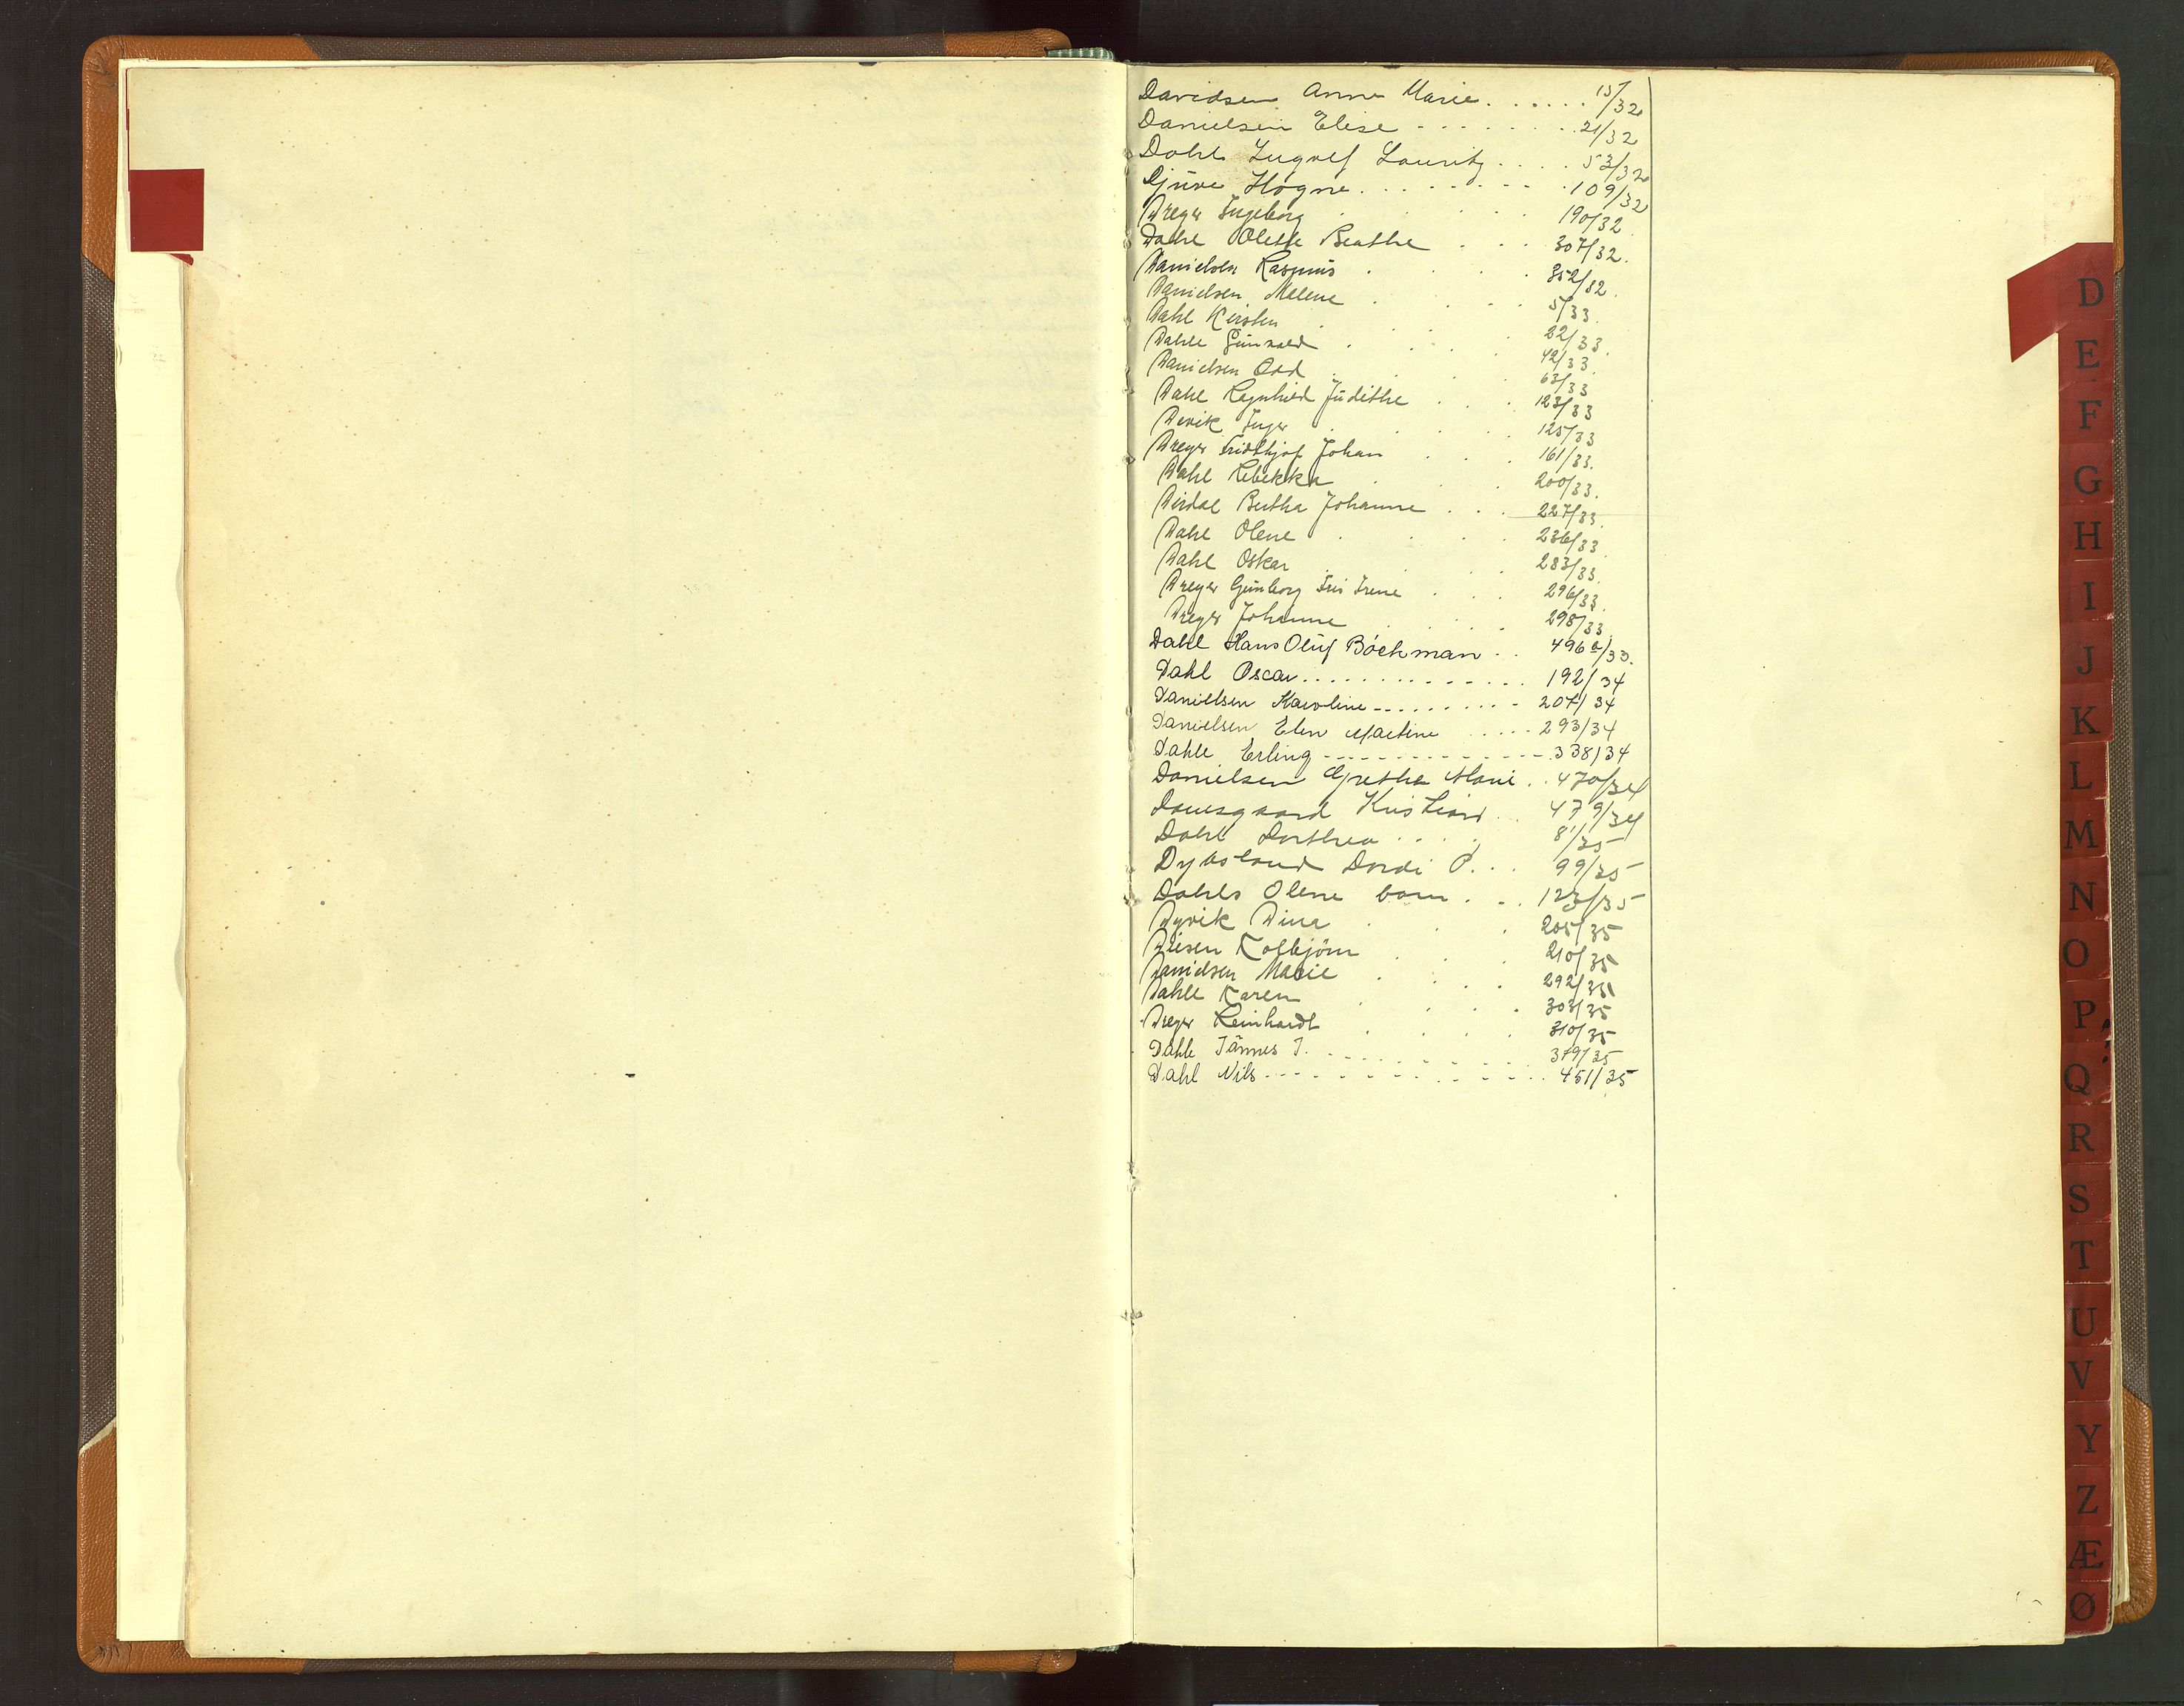 Davidsen Anne Marie . . . . . . 15/32
Danielsen Elise - - - - - - - . . 21/32
Dahl Ingolf Lauritz . . . . 53/32
Djuve Hogne . . . . . . - - . 109/32
Dreyer Ingeborg . . . . 190/32
Dahl Olette Beathe . . . 307/32.
Danielsen Rasmus . . . . 352/32.
Danielsen Malene . . . . 5/33.
Dahl Kirsten . . . . 22/33.
Dahle Gunvald . . . . 42/33.
Danielsen Odd . . . . 63/33
Dahl Ragnhild Judithe . . . 123/33
Devik Inger . . . . 125/33
Dreyer Fridthjof Johan . . . 161/33.
Dahl Rebekka . . . . 200/33.
Dirdal Bertha Johanne . . . 227/33.
Dahl Olene . . . . 236/33.
Dahl Oskar . . . . 283/33.
Dreyer Gunborg Iris Irene . . . 296/33.
Dreyer Johanne . . . . 298/33.
Dahl Hans Oluf Böckman . . 496 a/33.
Dahl Oscar . . . . . . . . . . . . . . 192/34
Danielsen Karoline - - - - - - - - - - 207/34
Danielsen Elen Martine . . . . . 293/34
Dahle Erling - - - - - - - - - - - - - 338/34
Danielsen Grethe Marie . . 470/34
Dausgaard Kristian . . 479/34
Dahl Dorthea . . . . 81/35
Dybsland Dordi P. . . 99/35
Dahls Olene barn . . . 123/35
Dyvik Dina . . . 205/35
Diesen Kolbjörn . . . 210/35
Danielsen Marie . . . . 292/35
Dahle Karen . . . . 303/35
Dreyer Reinhardt . . . . 310/35
Dahle Tønnes T. - - - - - - - - 379/35
Dahl Nils - - - - - - - - - - - - - 451/35
D
E
F
G
H
I
J
K
L
M
N
O
P
Q
R
S
T
U
V
Y
Z
Æ
Ø